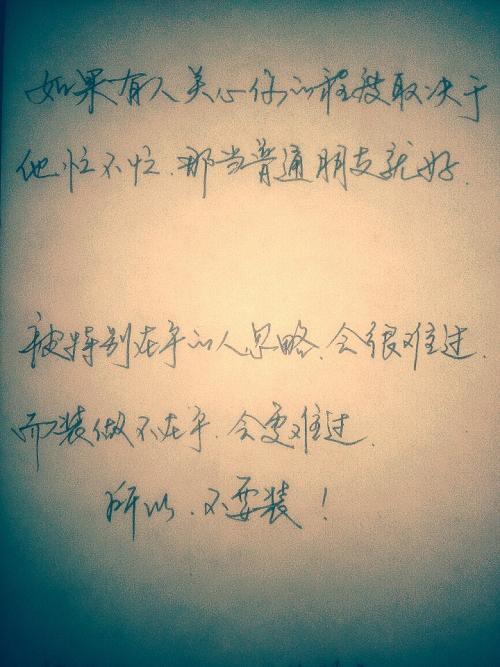 如果有人关心你的程度取决于
他忙不忙、那当普通朋友就好.
被特别在乎的人忽略、会很难过.
而装做不在乎、会更难过.
所以、不要装！